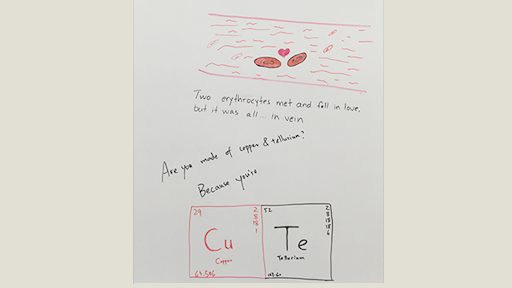 Two erythrocytes met and fell in love,
but it was all... in vein
Are you made of copper & tellurium?
Because you're
29
2
8
18
1
Cu
Copper
63.546
52
2
8
18
18
6
Te
Tellurium
127.60